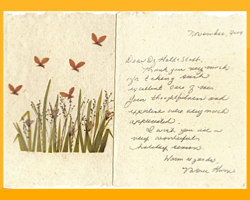 November, 2014
Dear Dr. Hall & Staff,
Thank you very much
for taking such
excellent care of me.
Your thoughtfulness and
expertise were very much
appreciated.
I wish you all a
very wonderful
holiday season.
Warm regards,